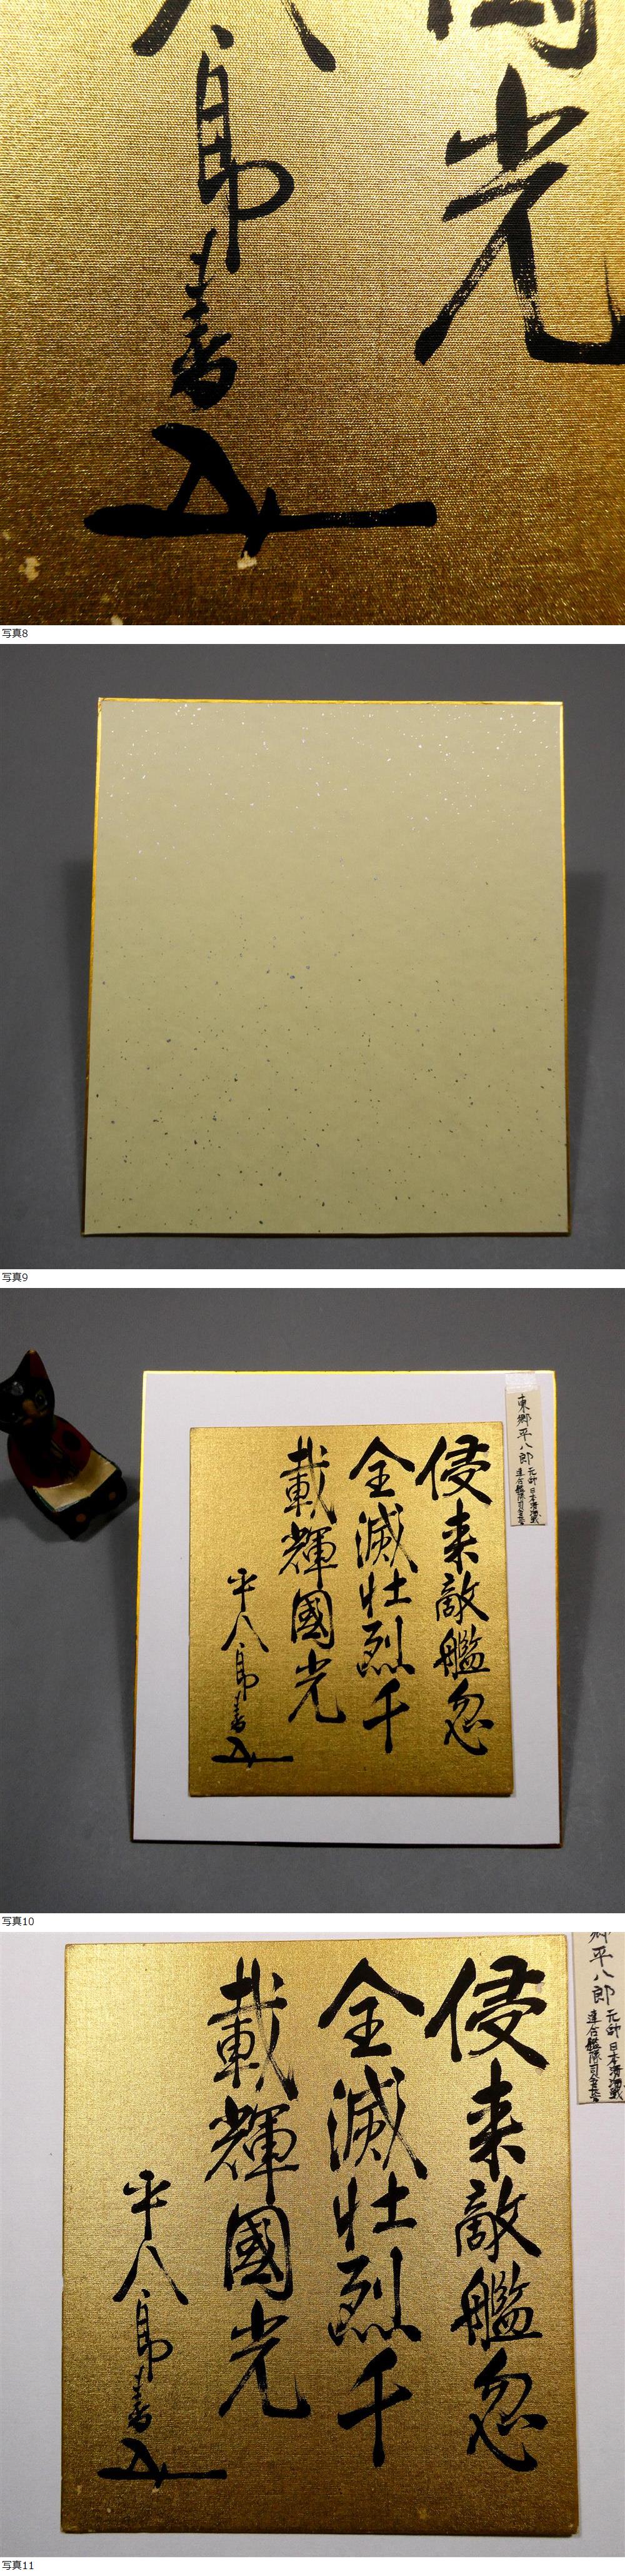 八
郎書
國
光
写真8
写真9
東郷平八郎
元帥 日本海海戦
連合艦隊司令長官
侵来敵艦忽
全滅壮烈千
載輝國光
平八郎書
写真10
郷平八郎
元帥 日本海海戦
連合艦隊司令長官
侵来敵艦忽
全滅壮烈千
載輝國光
平八郎書
写真11